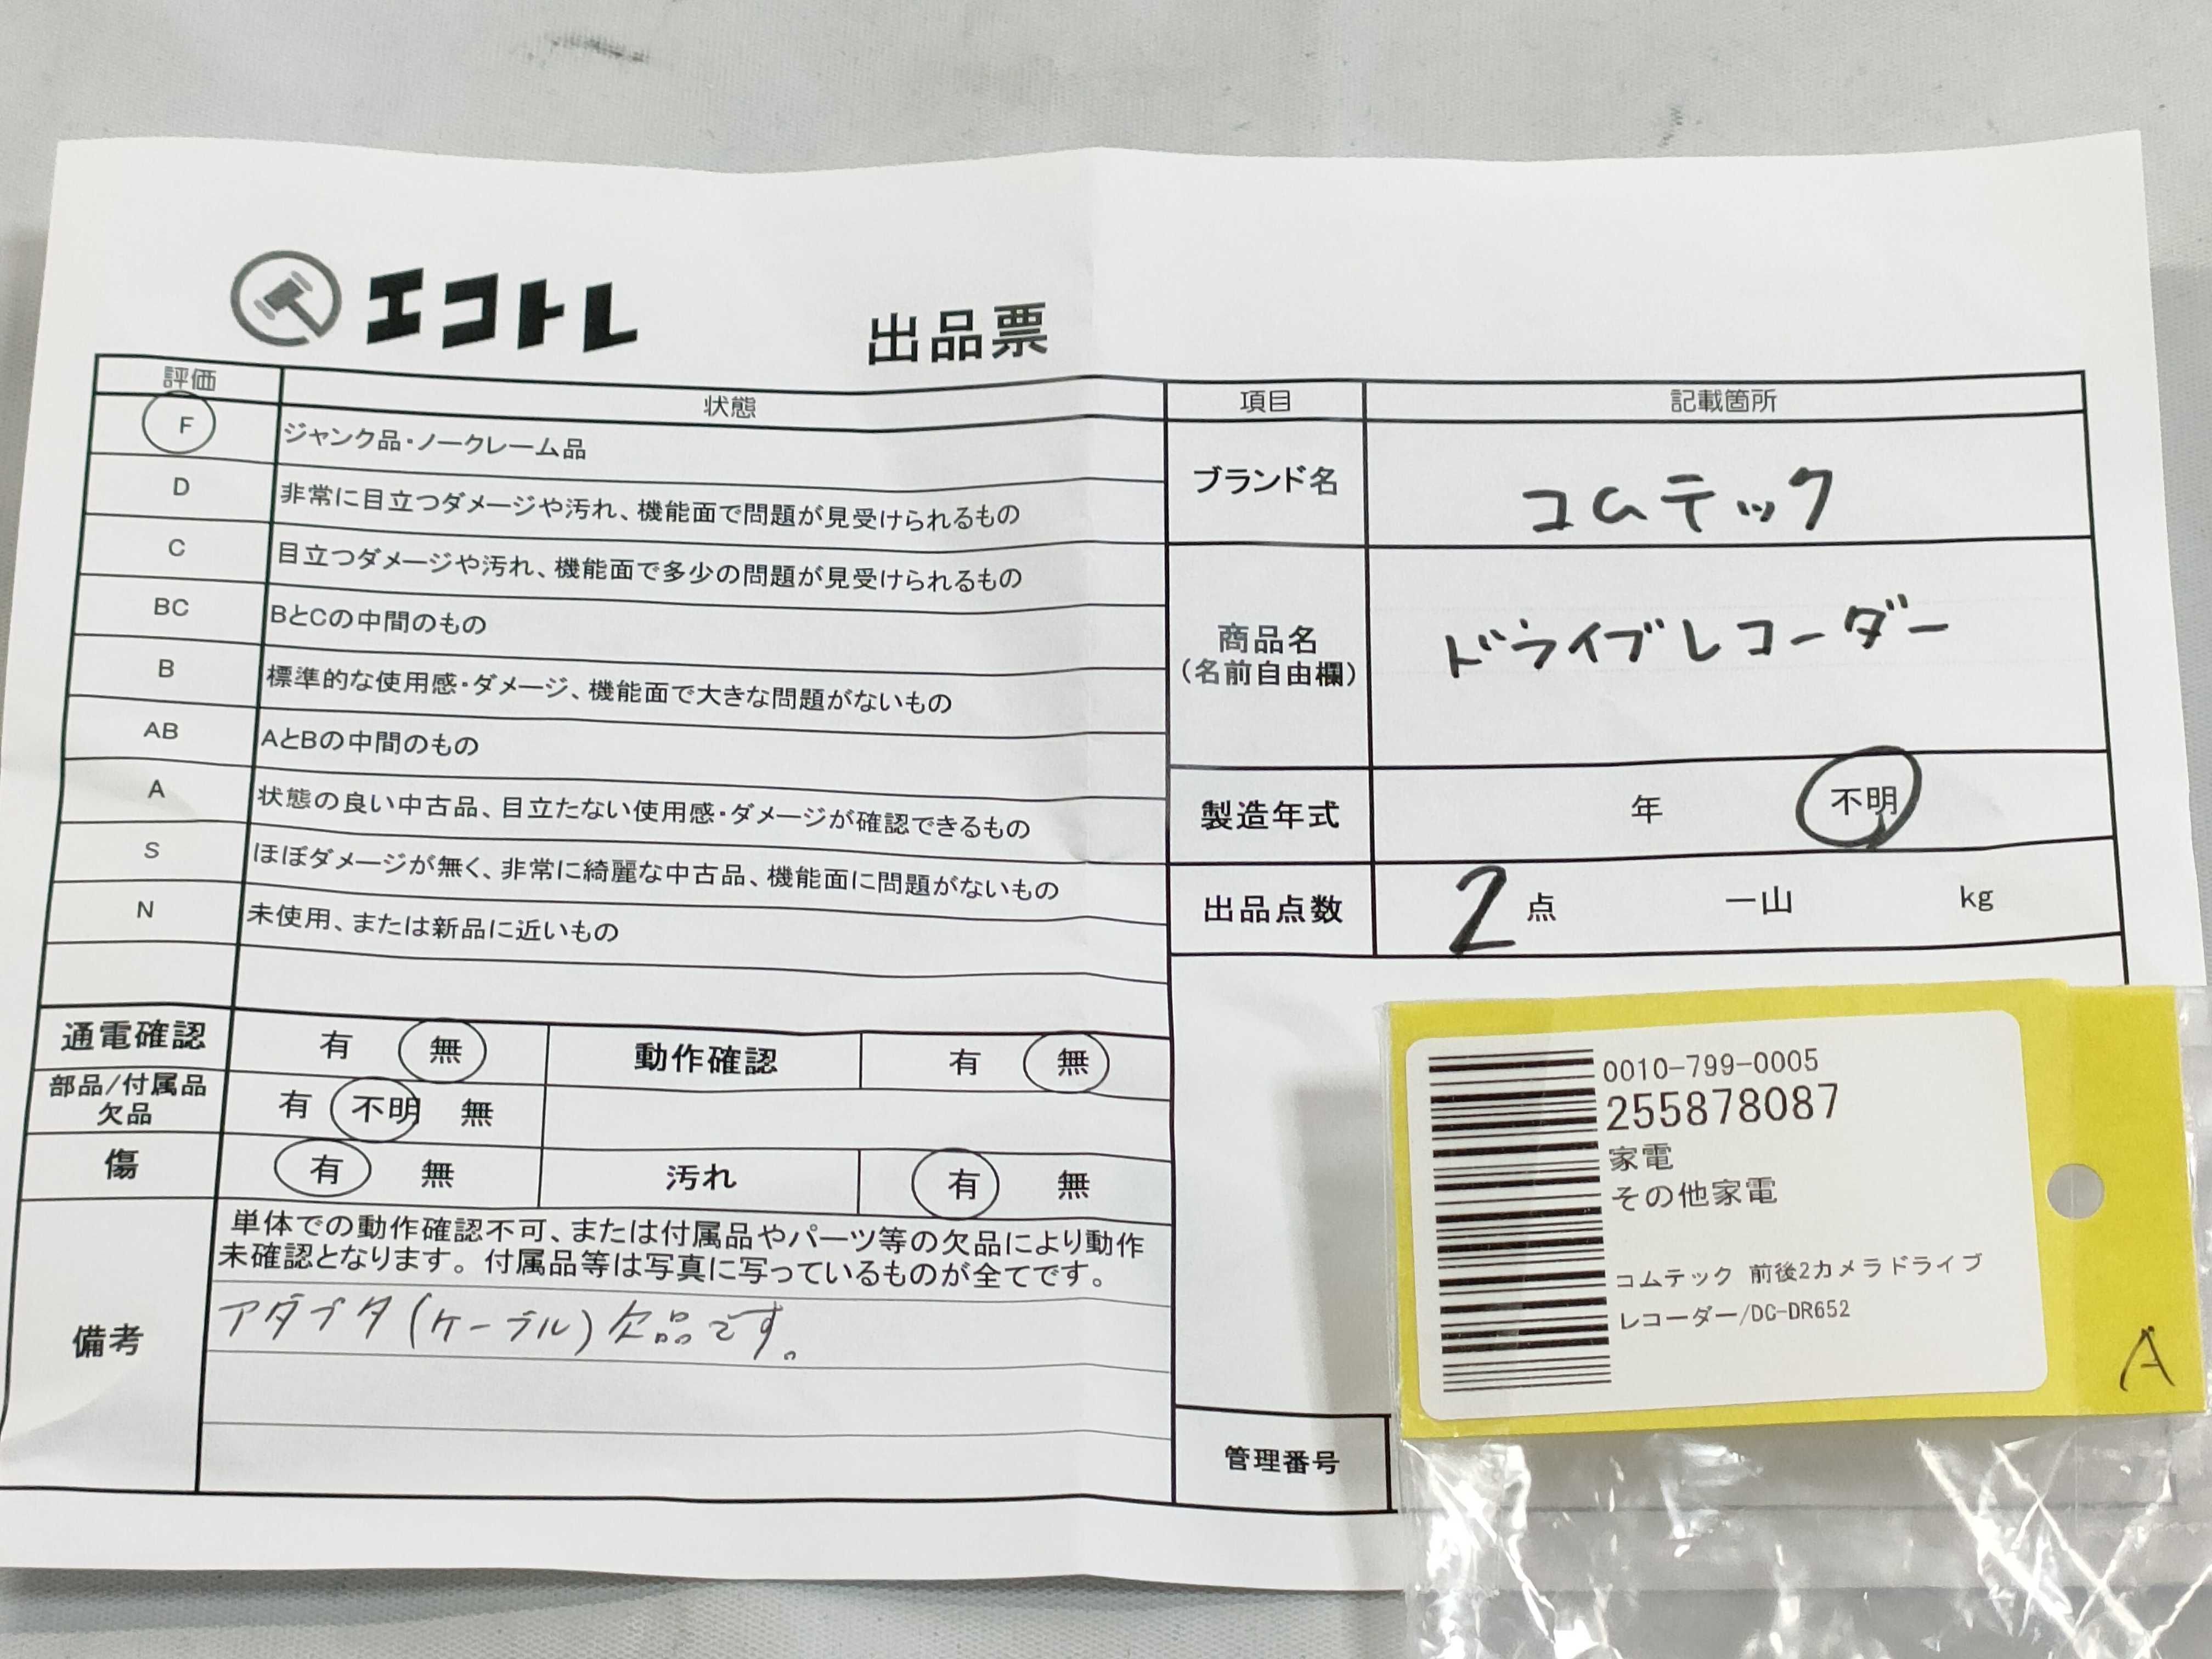 エコトレ
出品票
評価 状態
F ジャンク品・ノークレーム品
D 非常に目立つダメージや汚れ、機能面で問題が見受けられるもの
C 目立つダメージや汚れ、機能面で多少の問題が見受けられるもの
BC BとCの中間のもの
B 標準的な使用感・ダメージ、機能面で大きな問題がないもの
AB AとBの中間のもの
A 状態の良い中古品、目立たない使用感・ダメージが確認できるもの
S ほぼダメージが無く、非常に綺麗な中古品、機能面に問題がないもの
N 未使用、または新品に近いもの
通電確認 有 無 動作確認 有 無
部品/付属品
欠品
有 不明 無
傷 有 無 汚れ 有 無
備考
単体での動作確認不可、または付属品やパーツ等の欠品により動作
未確認となります。付属品等は写真に写っているものが全てです。
アダプタ(ケーブル)欠品です。
項目 記載箇所
ブランド名 コムテック
商品名
(名前自由欄)
ドライブレコーダー
製造年式 年 不明
出品点数 2点 一山 kg
管理番号
0010-799-0005
255878087
家電
その他家電
コムテック 前後2カメラドライブ
レコーダー/DC-DR652
A